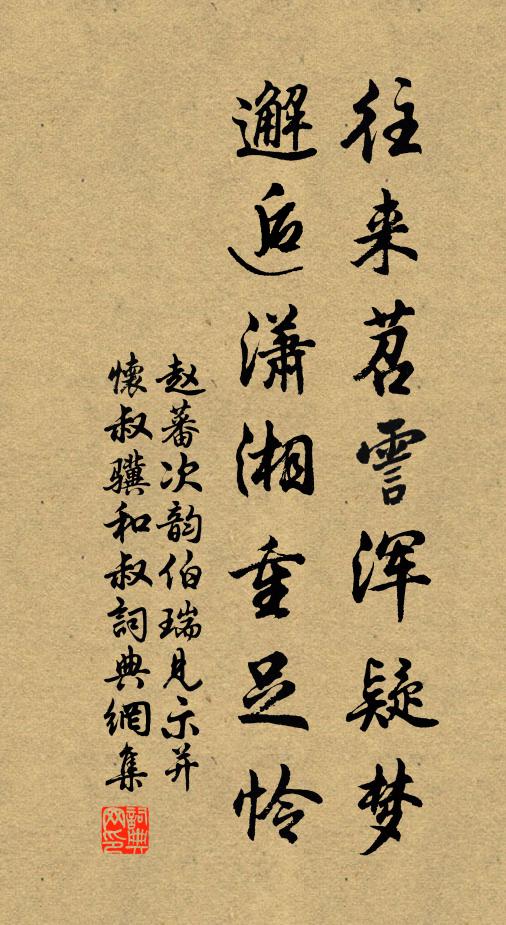 往来苕霅浑疑梦
邂逅潇湘重足怜
赵蕃次韵伯瑞见示并
懷叔骥和叔詞典網集
詞典网印